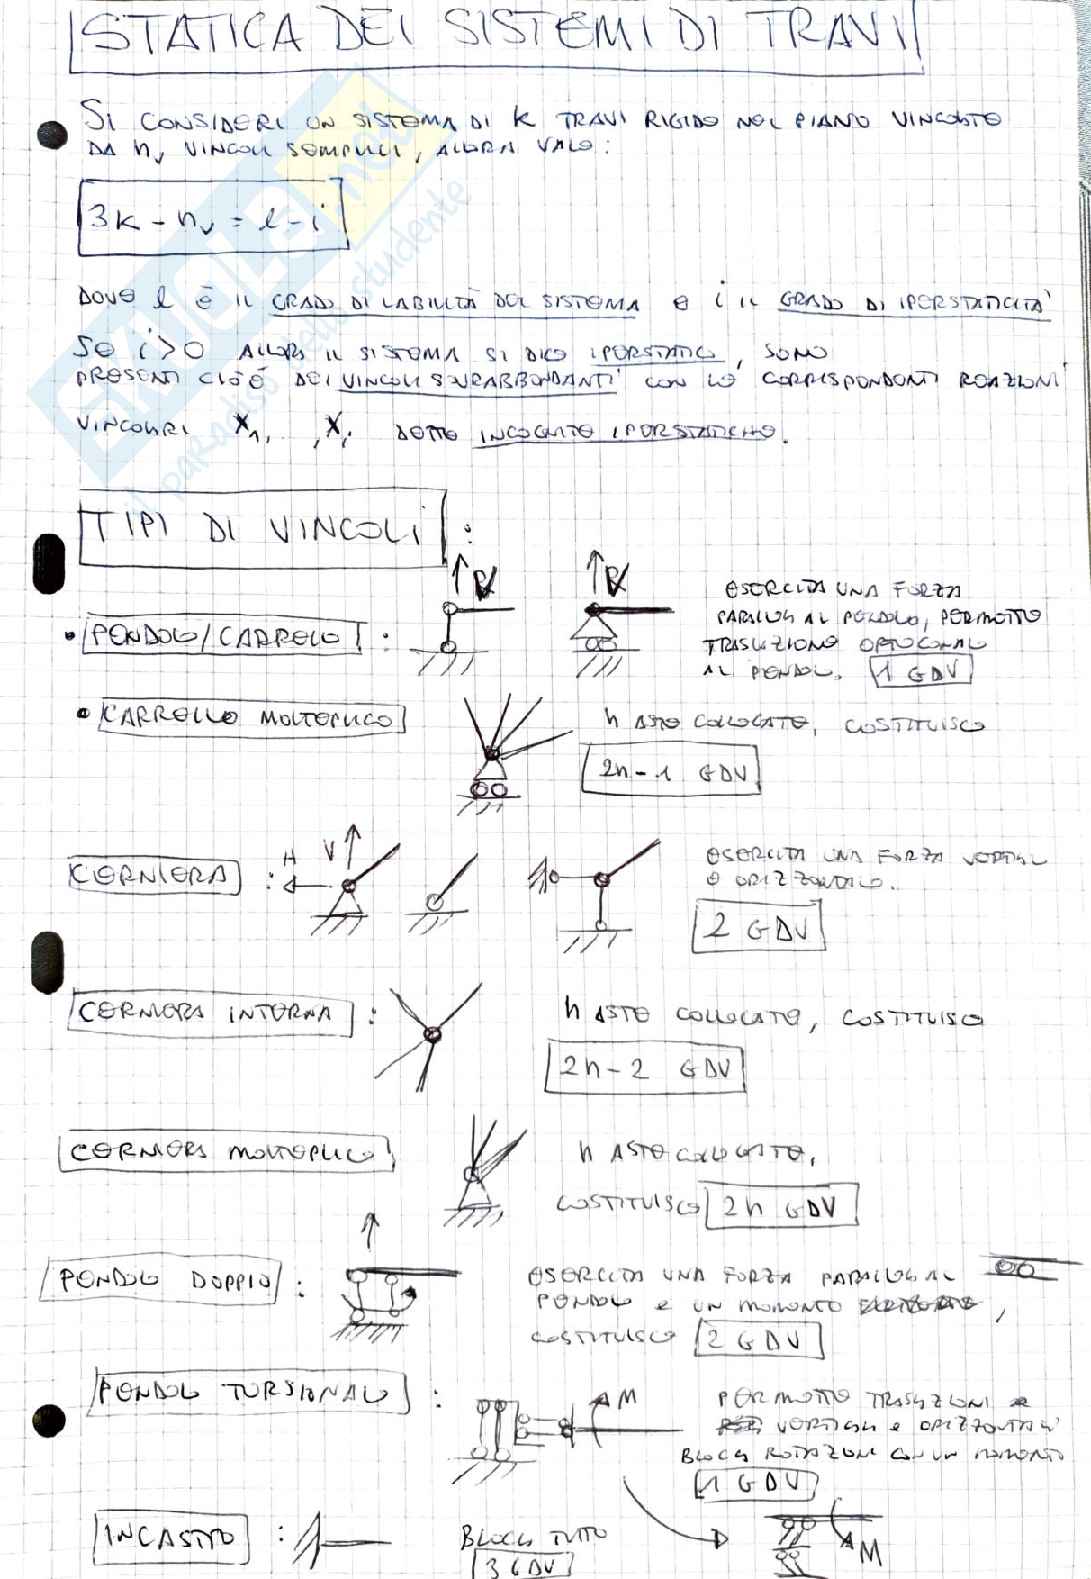 STATICA DEI SISTEMI DI TRAVI
SI CONSIDERI UN SISTEMA DI K TRAVI RIGIDE NEL PIANO VINCOLATO
DA nv VINCOLI SEMPLICI, ALLORA VALE:
3K - nv = l - i
DOVE l È IL GRADO DI LABILITÀ DEL SISTEMA E i IL GRADO DI IPERSTATICITÀ
SE i>0 ALLORA IL SISTEMA SI DICE IPERSTATICO, SONO
PRESENTI CIOÈ DEI VINCOLI SOVRABBONDANTI CON LE CORRISPONDENTI REAZIONI
VINCOLARI X1, ..., Xi DETTE INCOGNITE IPERSTATICHE.
TIPI DI VINCOLI:
• PENDOLO/CARRELLO:
ESERCITA UNA FORZA
PARALLELA AL PENDOLO, PERMETTE
TRASLAZIONE ORTOGONALE
AL PENDOLO. 1 GDV
• CARRELLO MOLTEPLICE
n ASTE COLLEGATE, COSTITUISCE
2n-1 GDV
CERNIERA:
H V
ESERCITA UNA FORZA VERTICALE
E ORIZZONTALE.
2 GDV
CERNIERA INTERNA:
n ASTE COLLEGATE, COSTITUISCE
2n-2 GDV
CERNIERA MOLTEPLICE
n ASTE COLLEGATE,
COSTITUISCE 2n GDV
PENDOLO DOPPIO:
ESERCITA UNA FORZA PARALLELA AL
PENDOLO E UN MOMENTO ,
COSTITUISCE 2 GDV
PENDOLO TORSIONALE:
M
PERMETTE TRASLAZIONI
VERTICALI E ORIZZONTALI
BLOCCA ROTAZIONE CON UN MOMENTO
1 GDV
INCASTRO:
BLOCCA TUTTO
3 GDV
M
SKUOLA.net
il paradiso dello studente